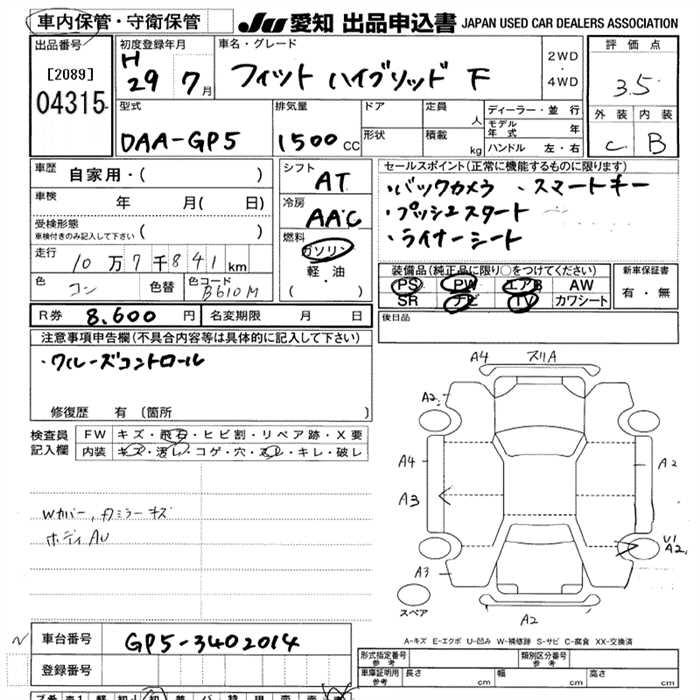 車内保管・守衛保管 JU 愛知 出品申込書 JAPAN USED CAR DEALERS ASSOCIATION
出品番号 初度登録年月 車名・グレード 評価点
[2089] H 29 7月 フィット ハイブリッド F 2WD・4WD 3.5
04315 型式 排気量 ドア 定員 人 ディーラー・並行 外装 内装
DAA-GP5 1500 CC 形状 積載 kg モデル年式 年 C B
ハンドル 左・右
車歴 自家用・( ) シフト AT セールスポイント(正常に機能するものに限ります)
車検 年 月( 日) 冷房 AAC ・バックカメラ ・スマートキー
受検形態 ・プッシュスタート
車検付きのみ記入して下さい ( ) 燃料 ガソリン ・ライナーシート
走行 10万7千841km 軽・油 装備品(純正品に限り○をつけてください) 新車保証書
色 コン 色替 色コード B610M ( ) PS PW エアB AW 有・無
SR ナビ TV カワシート
R券 8,600円 名変期限 月 日 後日品
注意事項申告欄(不具合内容等は具体的に記入して下さい)
・クルーズコントロール
修復歴 有 (箇所 )
検査員記入欄 FW キズ・飛石・ヒビ割・リペア跡・X要
内装 キズ・汚レ・コゲ・穴・スレ・キレ・破レ
Wカバー,Fミラーキズ
ボディAU
A4 スリA
A2
A4 A2
A3
U1
A2
A3
スペア A2
A-キズ E-エクボ U-凹み W-補修跡 S-サビ C-腐食 XX-交換済
車台番号 GP5-3402014
登録番号
形式指定番号 参考 類別区分番号 参考
車庫証明用 参考 長さ cm 幅 cm 高さ cm